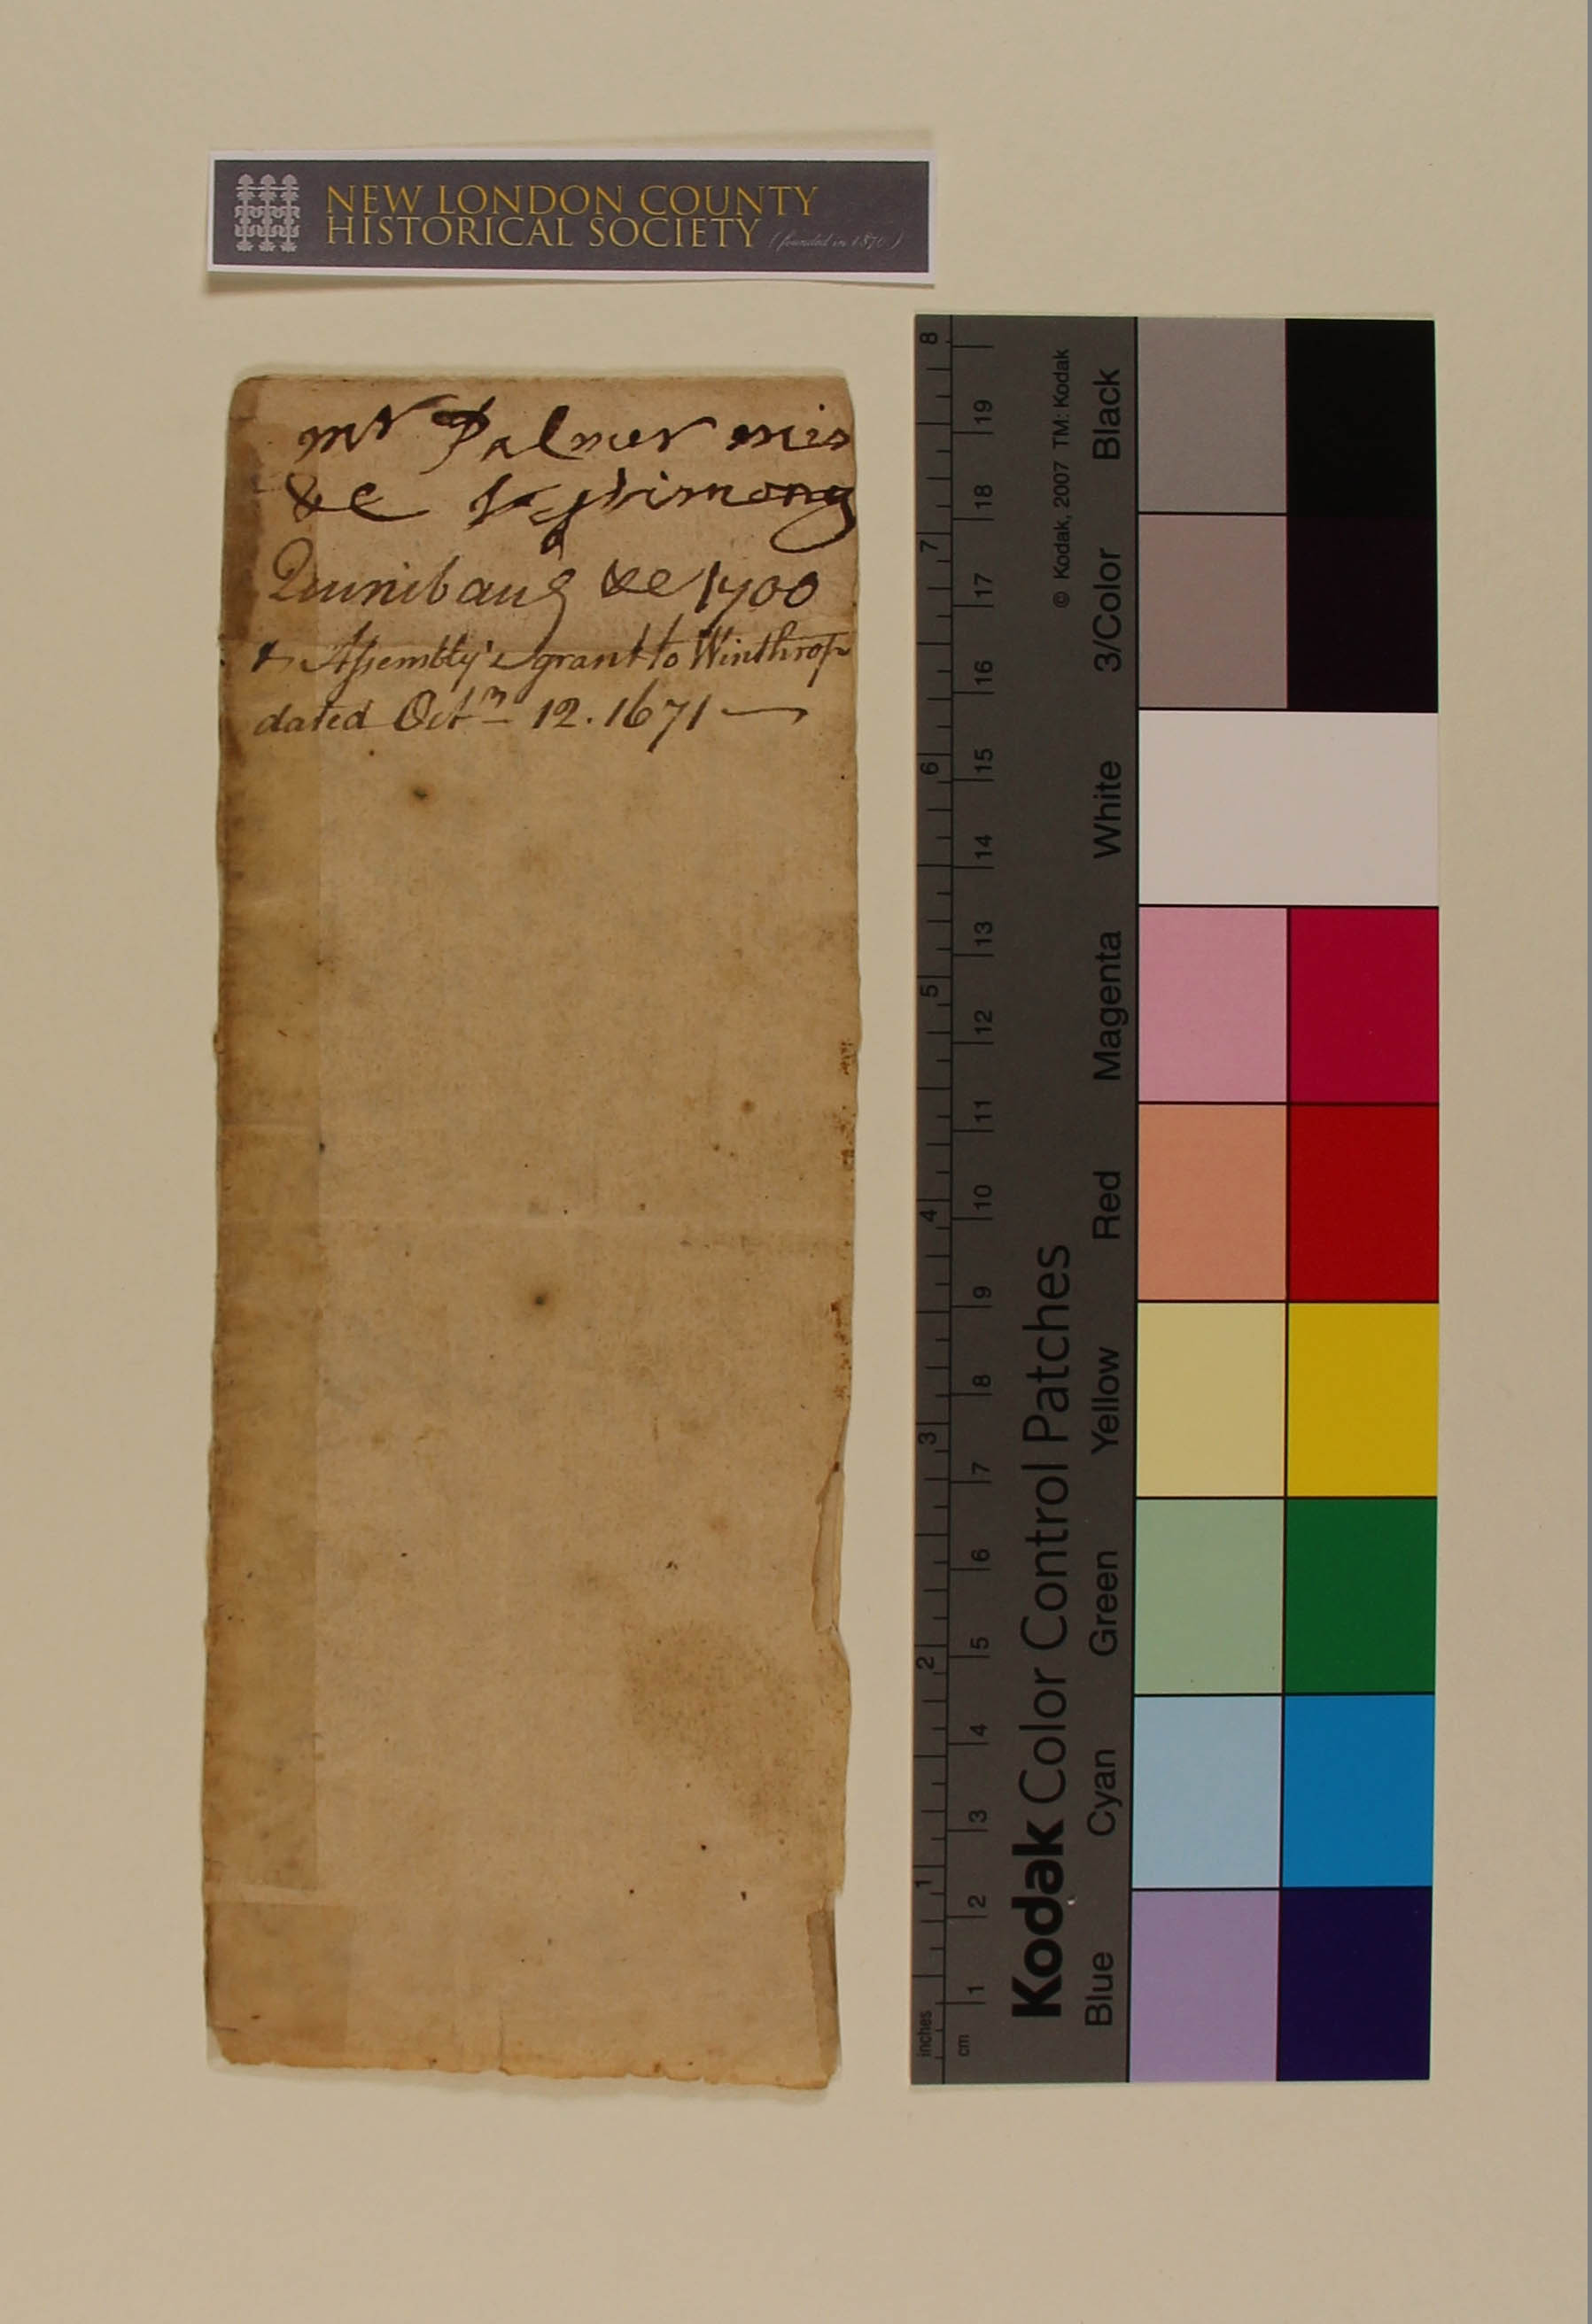 NEW LONDON COUNTY
HISTORICAL SOCIETY (founded in 1870)
mr Palmer
&c
Quinibaug &c 1700
& Assembly's grant to Winthrop
dated Octm 12. 1671
8
7
6
5
4
3
2
1
inches
19
18
17
16
15
14
13
12
11
10
9
8
7
6
5
4
3
2
1
cm
© Kodak, 2007 TM: Kodak
Kodak Color Control Patches
Blue Cyan Green Yellow Red Magenta White 3/Color Black